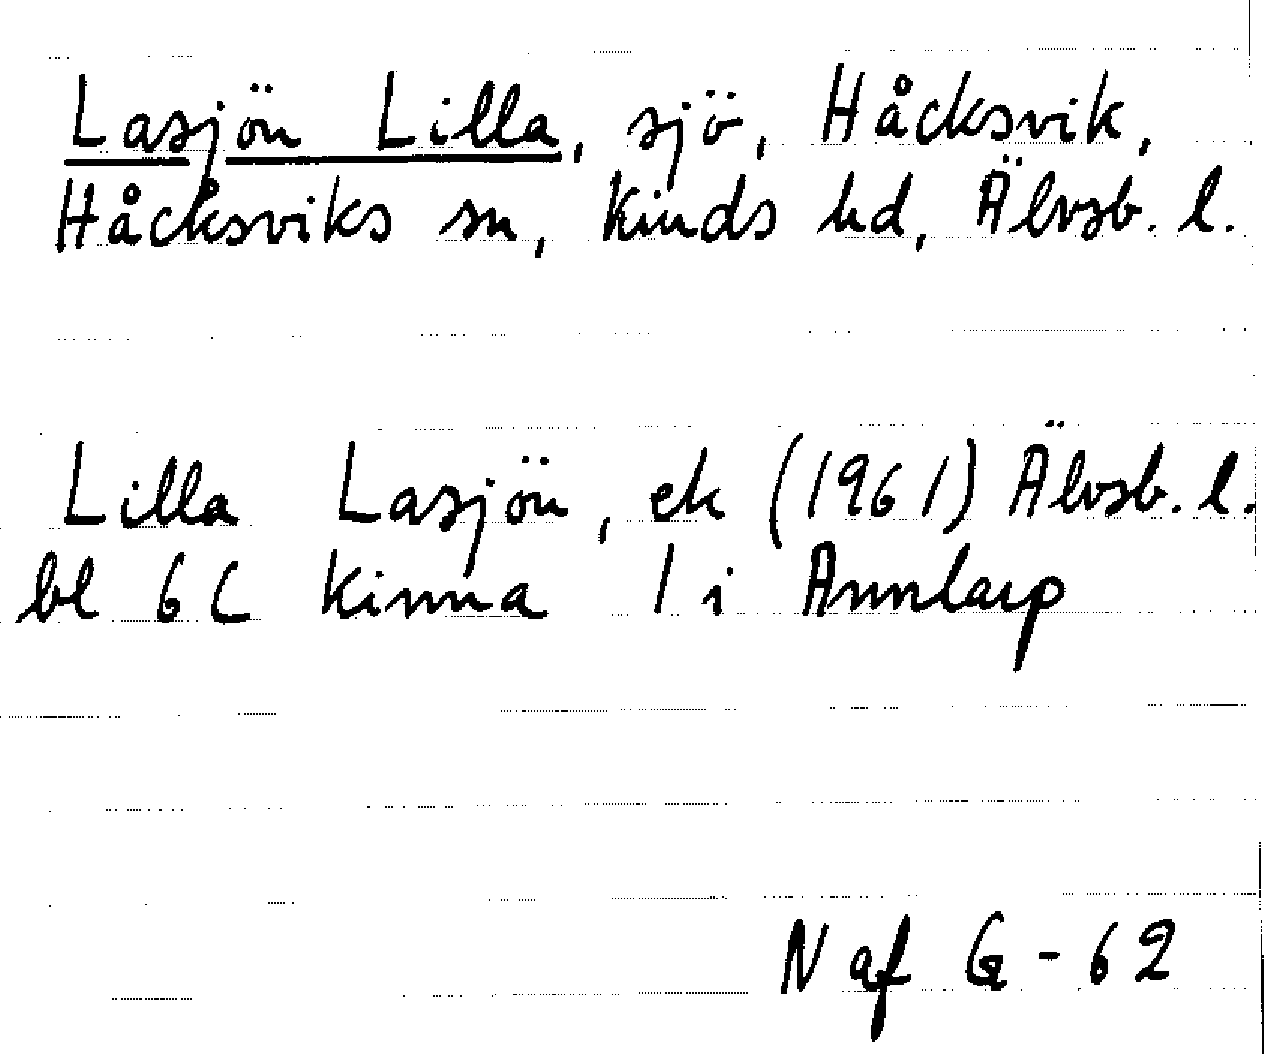 Lasjön Lilla, sjö, Håcksvik,
Håcksviks sn, Kinds hd, Älvsb. l.
Lilla Lasjön, ek (1961) Älvsb. l.
bl 6C Kinna 1 i Annlarp
N af G-62